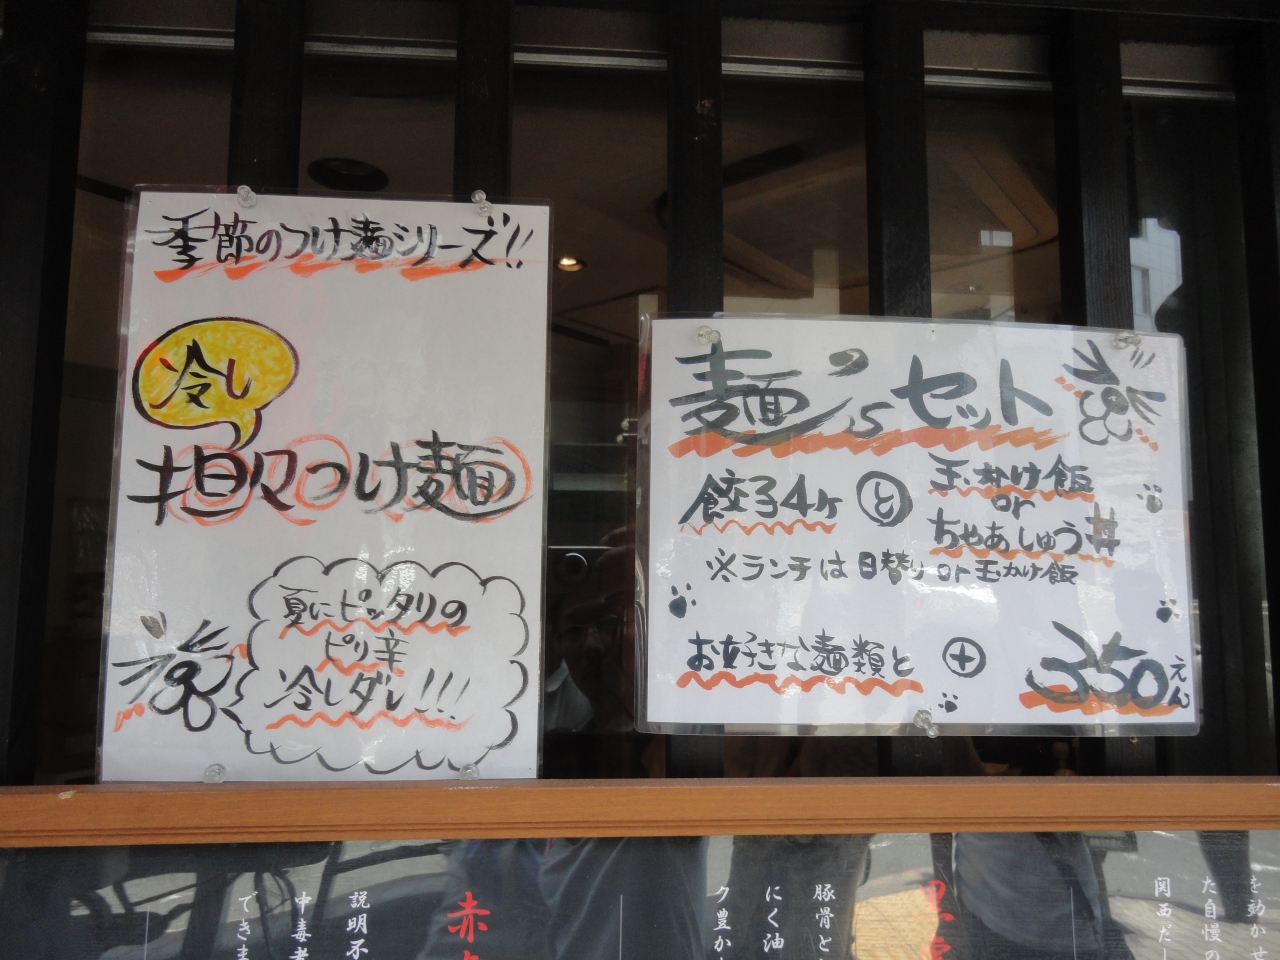 季節のつけ麺シリーズ!!
冷し
担々つけ麺
夏にピッタリの
ピリ辛
冷しダレ!!!
麺'sセット
餃子4ヶ と 玉かけ飯
or
ちゃあしゅう丼
※ランチは日替り or 玉かけ飯
お好きな麺類と + 350えん
を動かせ
た自慢の
関西だし
黒
豚骨と
にく油
ク豊か
赤
説明不
中毒者
できま